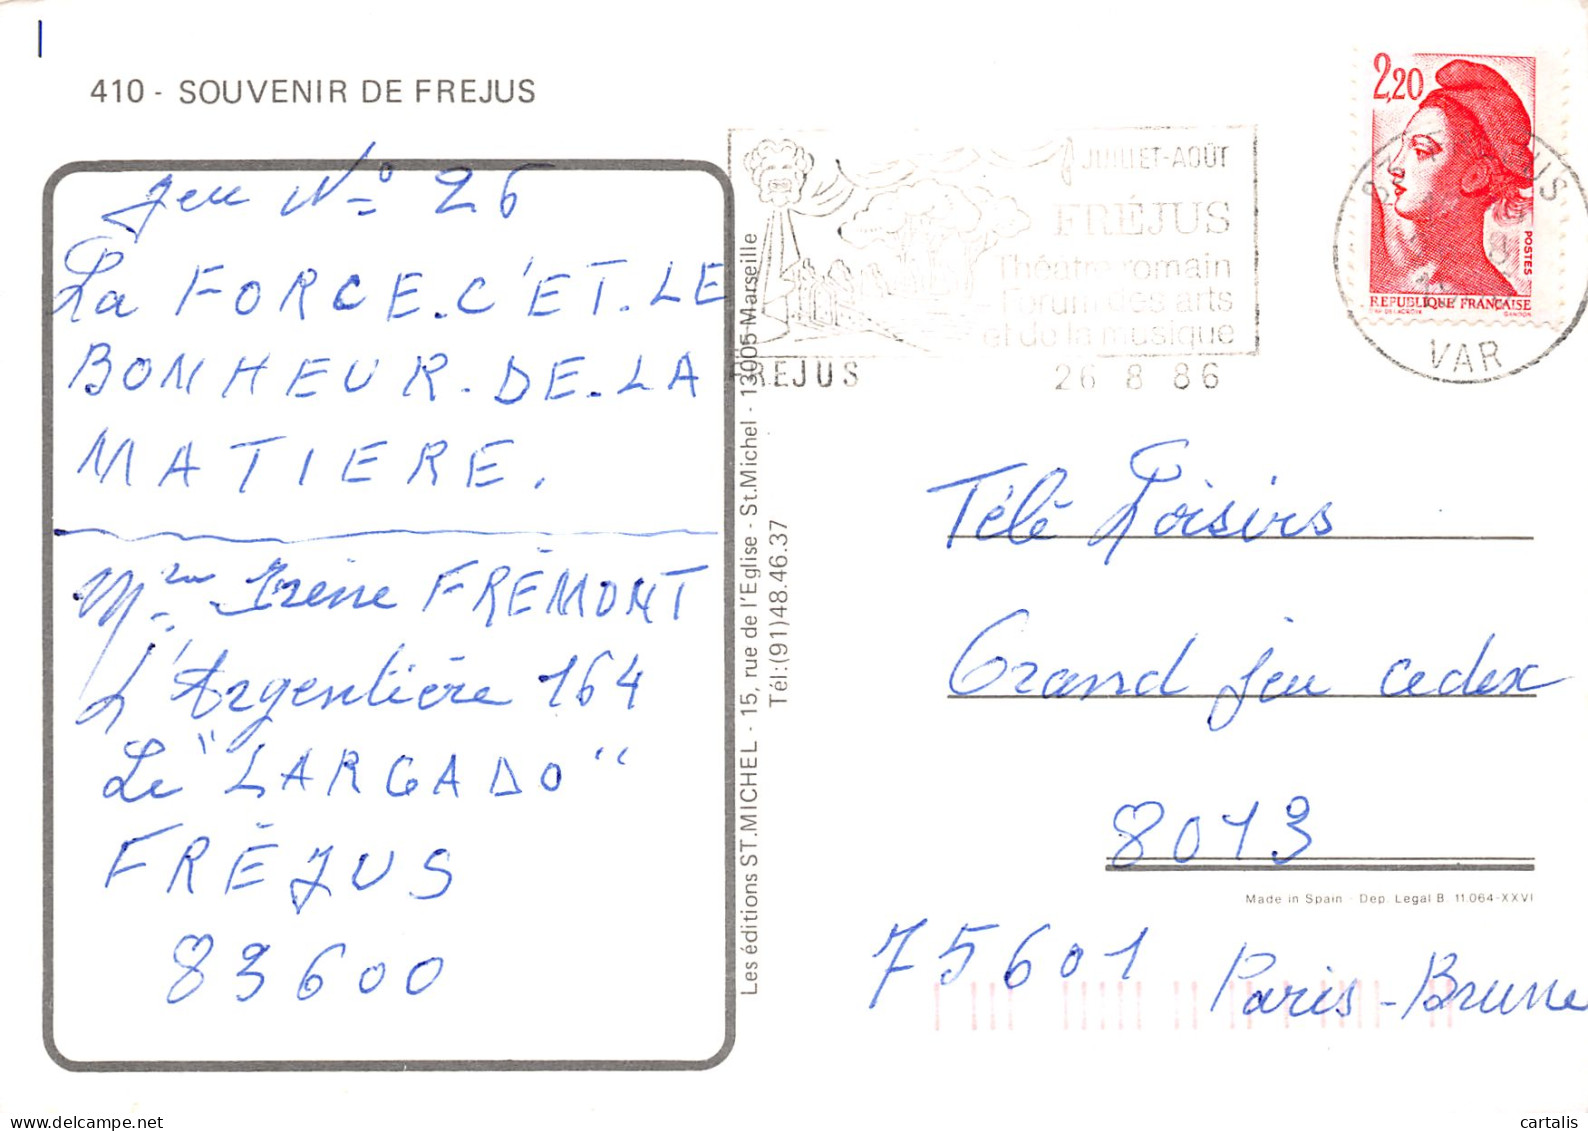 410 - SOUVENIR DE FREJUS
Jeu N° 26
La FORCE.C'ET.LE
BONHEUR.DE.LA
MATIERE.
Irène FRÉMONT
L'Argentière 164
Le "LARGADO"
FRÉJUS
83600
Les éditions ST.MICHEL - 15, rue de l'Eglise - St.Michel - 13005 Marseille
Tél:(91)48.46.37
JUILLET-AOÛT
FRÉJUS
Théâtre romain
Forum des arts
et de la musique
FREJUS
26 8 86
2,20
POSTES
REPUBLIQUE FRANÇAISE
VAR
Télé Loisirs
Grand jeu cedex
8013
Made in Spain - Dep. Legal B. 11.064-XXVI
75601 Paris-Brune
cartalis